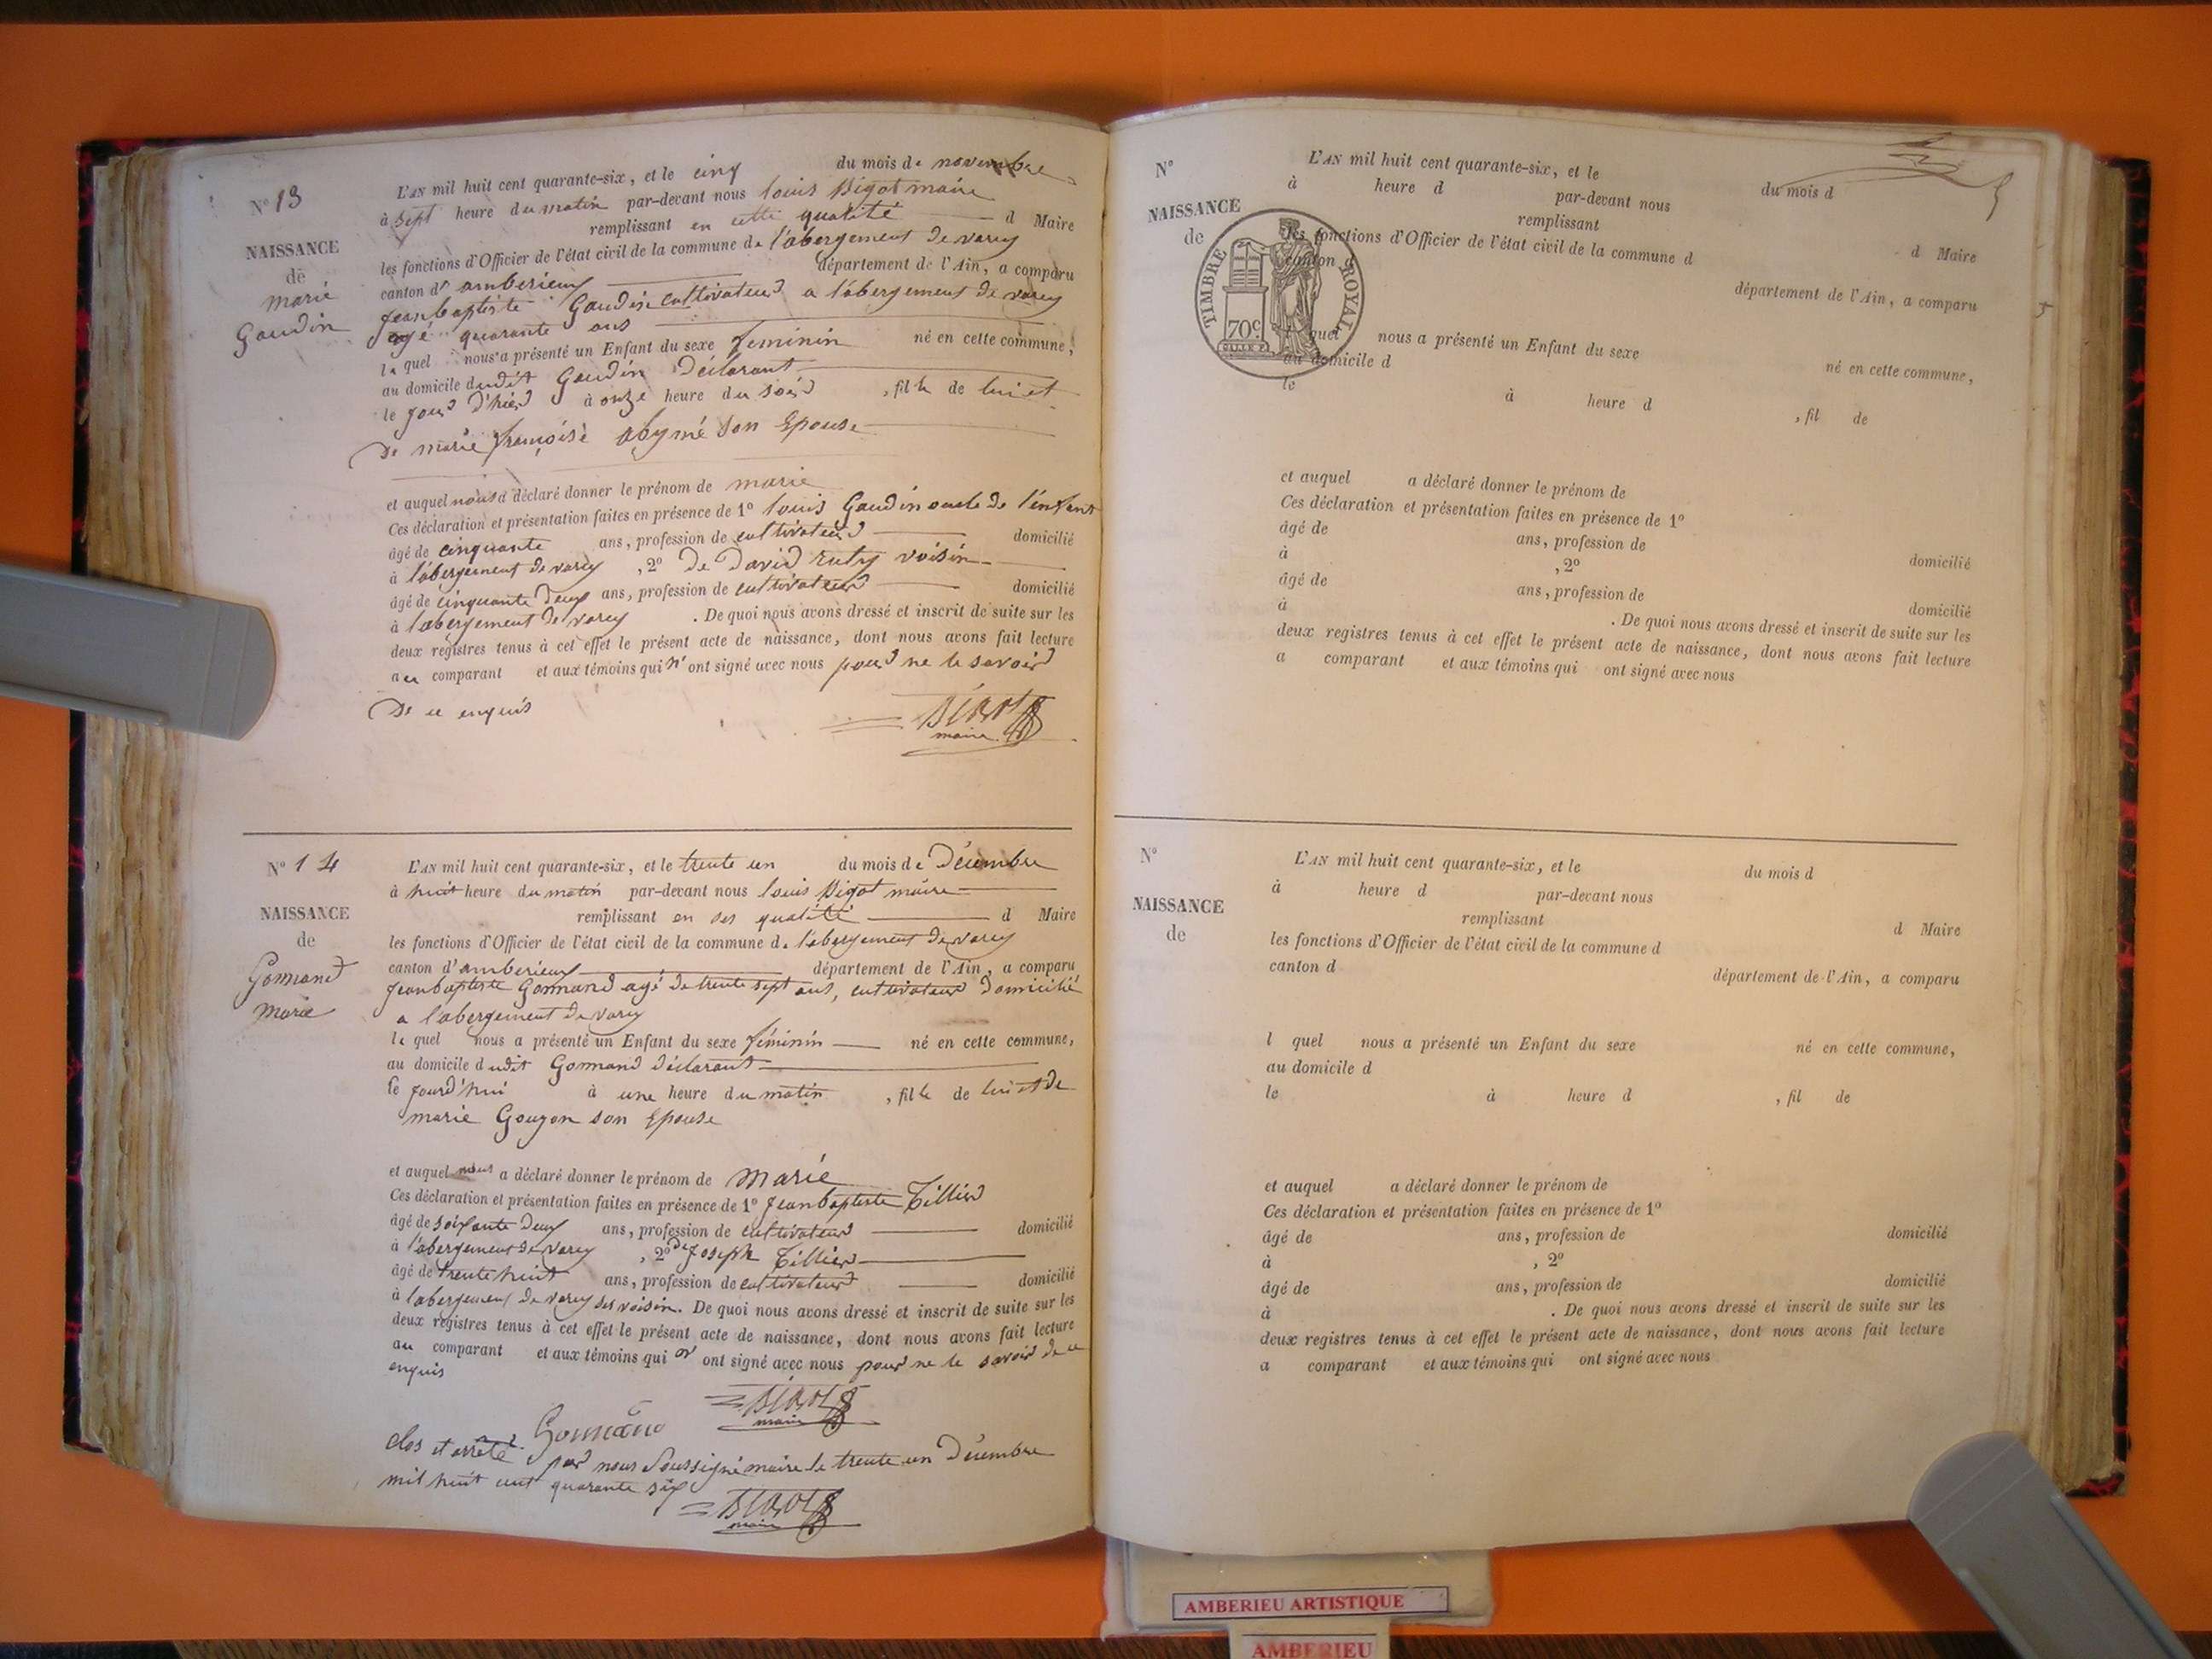 N° 13
NAISSANCE
de
marie
Gaudin
L'AN mil huit cent quarante-six, et le cinq du mois de novembre
à sept heure du matin par-devant nous louis Bigot maire
remplissant en cette qualité d Maire
les fonctions d'Officier de l'état civil de la commune de l'abergement de varey
canton d' amberieux département de l'Ain, a comparu
jeanbaptiste Gaudin cultivateur a l'abergement de varey
agé quarante ans
le quel nous a présenté un Enfant du sexe feminin né en cette commune,
au domicile dudit Gaudin Déclarant
le jour d'hier à onze heure du soir , fille de lui et
De marie françoise abymé son Epouse
et auquel nous a déclaré donner le prénom de marie
Ces déclaration et présentation faites en présence de 1° louis Gaudin oncle de l'enfant
âgé de cinquante ans, profession de cultivateur domicilié
à l'abergement de varey , 2° De David voisin
âgé de cinquante deux ans, profession de cultivateur domicilié
à l'abergement de varey . De quoi nous avons dressé et inscrit de suite sur les
deux registres tenus à cet effet le présent acte de naissance, dont nous avons fait lecture
au comparant et aux témoins qui n' ont signé avec nous pour ne le savoir
De ce enquis
Bigot
maire
N° 14
NAISSANCE
de
Gonnand
marie
L'AN mil huit cent quarante-six, et le trente un du mois de Décembre
à huit heure du matin par-devant nous louis Bigot maire
remplissant en ses qualité d Maire
les fonctions d'Officier de l'état civil de la commune de l'abergement de varey
canton d' amberieux département de l'Ain, a comparu
jeanbaptiste Gonnand agé de trente sept ans, cultivateur domicilié
a l'abergement de varey
le quel nous a présenté un Enfant du sexe féminin né en cette commune,
au domicile dudit Gonnand Déclarant
le jourd'hui à une heure du matin , fille de lui et de
marie Goujon son Epouse
et auquel nous a déclaré donner le prénom de marie
Ces déclaration et présentation faites en présence de 1° jeanbaptiste Tillier
âgé de soixante deux ans, profession de cultivateur domicilié
à l'abergement de varey , 2° de joseph Tillier
âgé de trente huit ans, profession de cultivateur domicilié
à l'abergement de varey ses voisin. De quoi nous avons dressé et inscrit de suite sur les
deux registres tenus à cet effet le présent acte de naissance, dont nous avons fait lecture
au comparant et aux témoins qui n' ont signé avec nous pour ne le savoir de ce
enquis
Bigot
maire
Gonnand
clos et arrêté par nous Soussigné maire le trente un Décembre
mil huit cent quarante six
Bigot
maire
N°
NAISSANCE
de
TIMBRE ROYAL
70c
L'AN mil huit cent quarante-six, et le du mois d
à heure d par-devant nous
remplissant d Maire
les fonctions d'Officier de l'état civil de la commune d
canton d département de l'Ain, a comparu
quel nous a présenté un Enfant du sexe né en cette commune,
au domicile d
le à heure d , fil de
et auquel a déclaré donner le prénom de
Ces déclaration et présentation faites en présence de 1°
âgé de ans, profession de domicilié
à , 2°
âgé de ans, profession de domicilié
à . De quoi nous avons dressé et inscrit de suite sur les
deux registres tenus à cet effet le présent acte de naissance, dont nous avons fait lecture
a comparant et aux témoins qui ont signé avec nous
N°
NAISSANCE
de
L'AN mil huit cent quarante-six, et le du mois d
à heure d par-devant nous
remplissant d Maire
les fonctions d'Officier de l'état civil de la commune d
canton d département de l'Ain, a comparu
l quel nous a présenté un Enfant du sexe né en cette commune,
au domicile d
le à heure d , fil de
et auquel a déclaré donner le prénom de
Ces déclaration et présentation faites en présence de 1°
âgé de ans, profession de domicilié
à , 2°
âgé de ans, profession de domicilié
à . De quoi nous avons dressé et inscrit de suite sur les
deux registres tenus à cet effet le présent acte de naissance, dont nous avons fait lecture
a comparant et aux témoins qui ont signé avec nous
AMBERIEU ARTISTIQUE
AMBERIEU